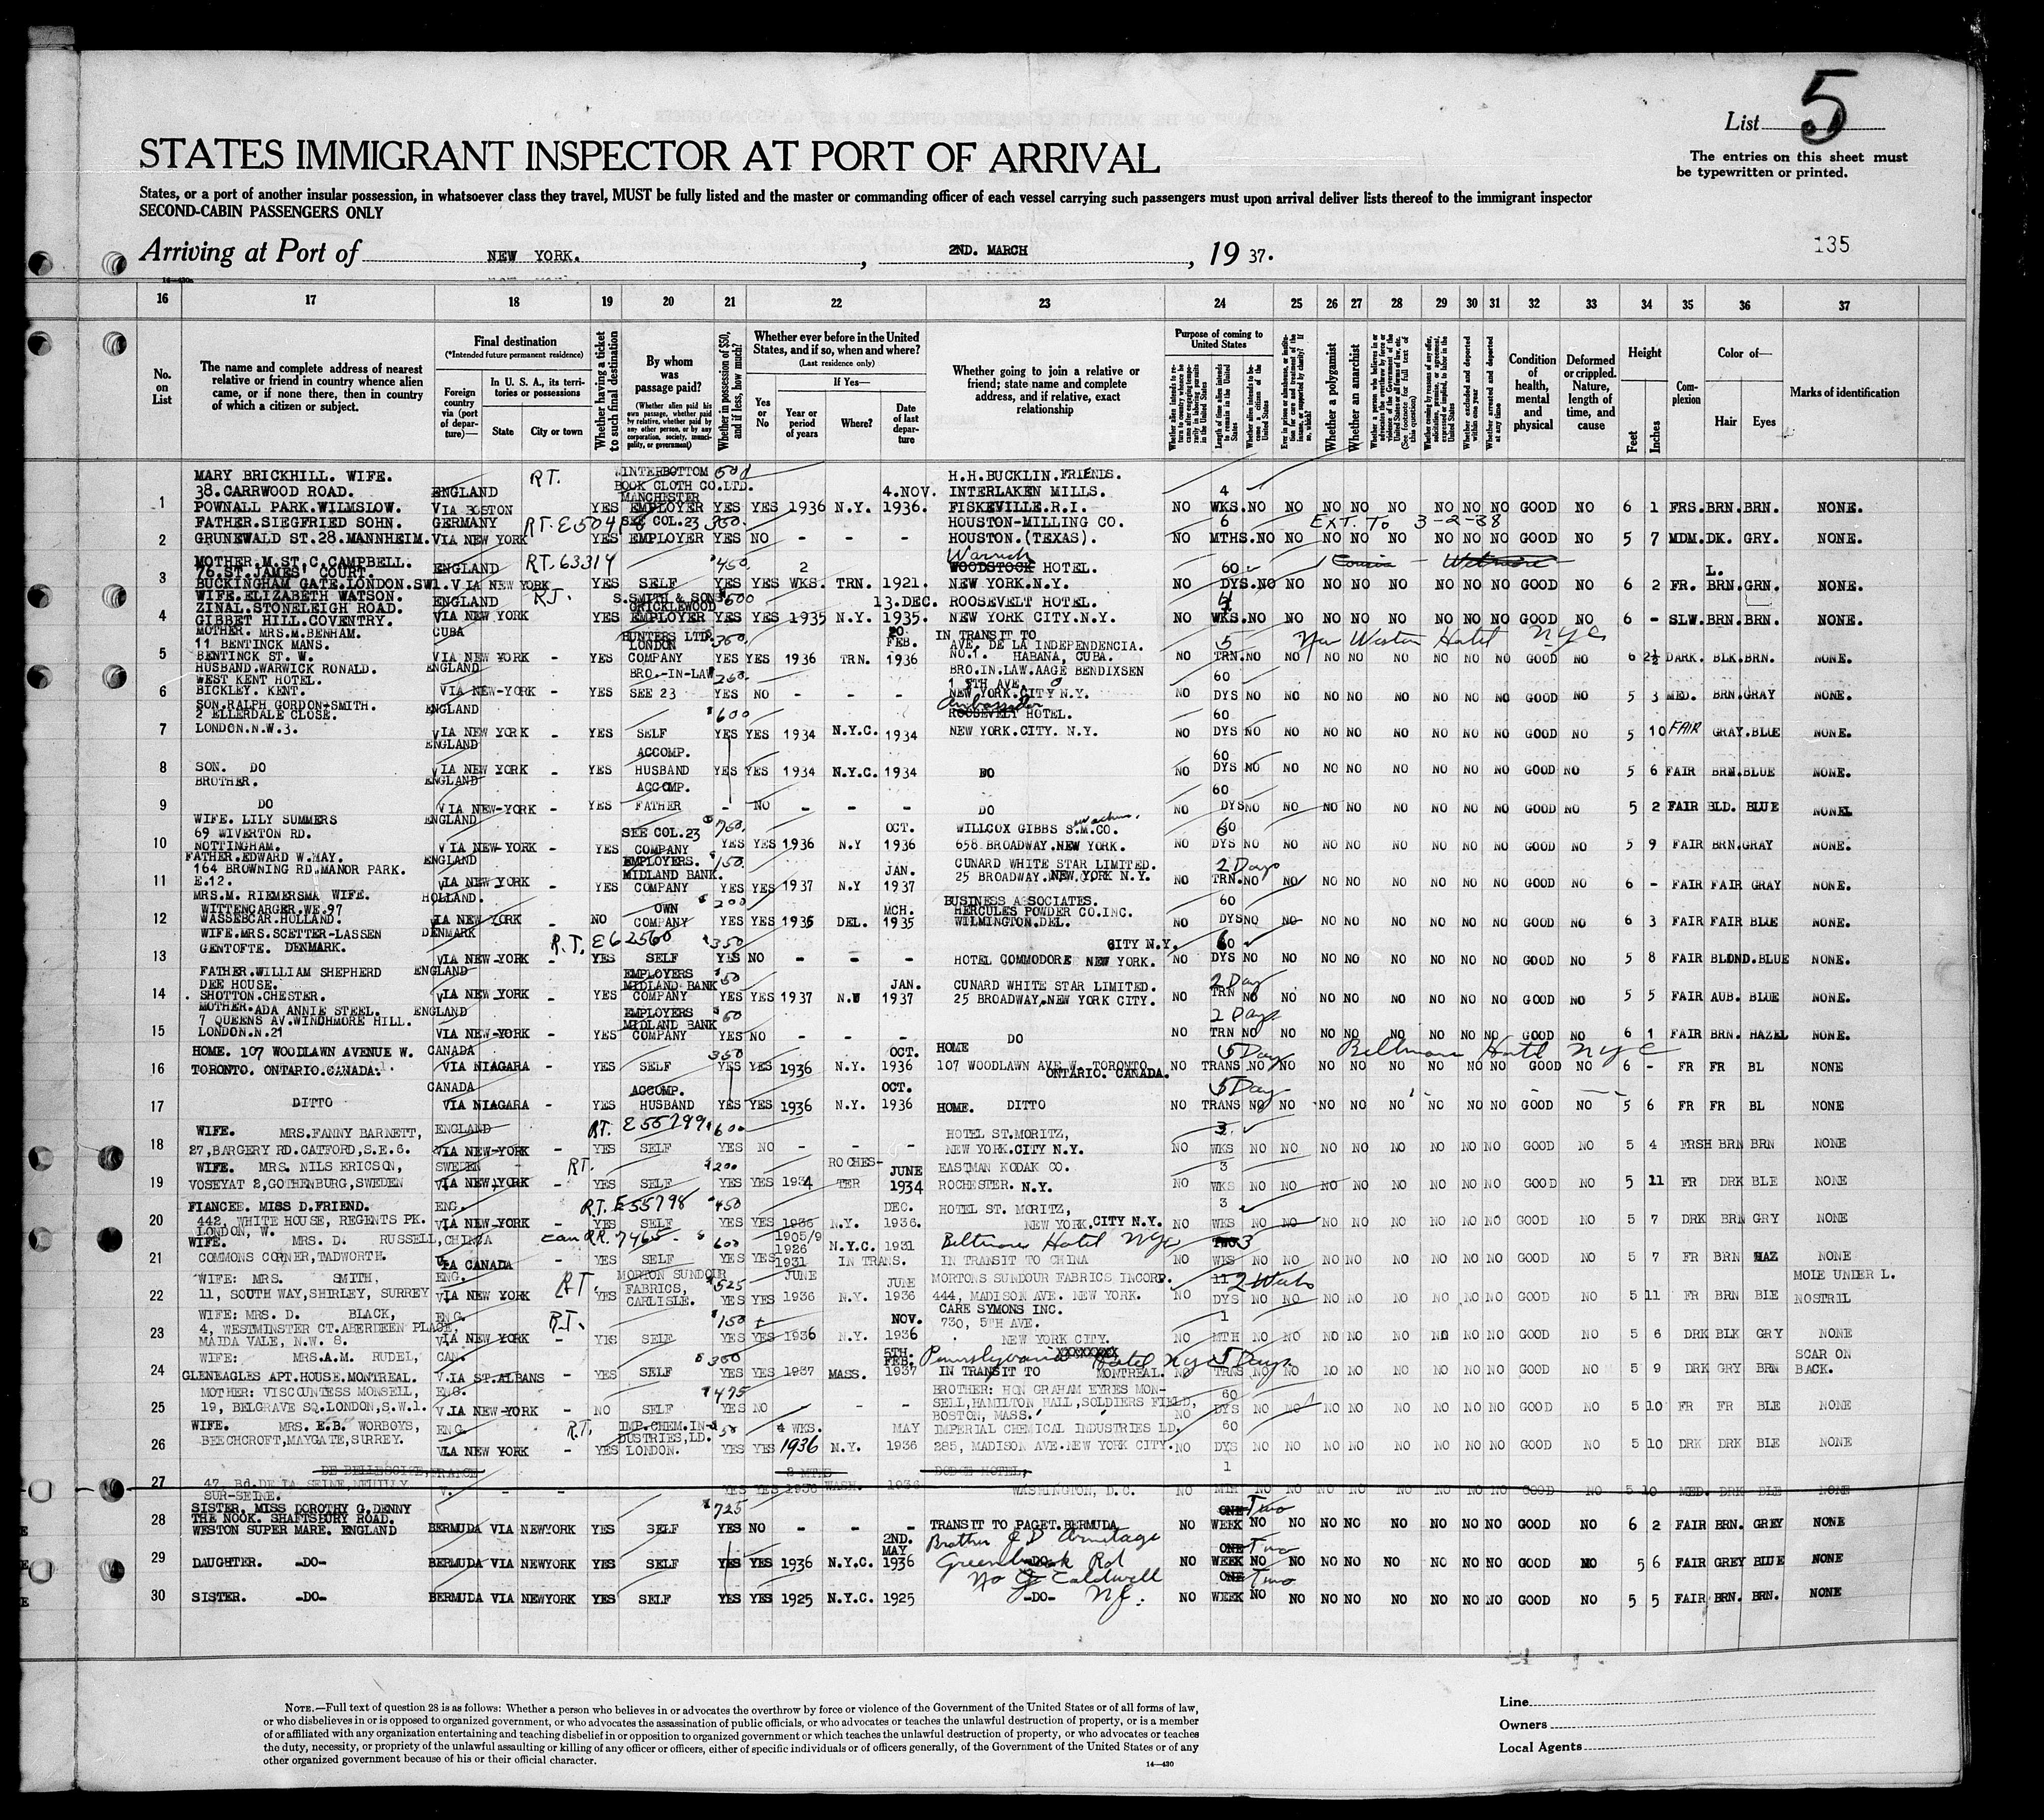 List 5
The entries on this sheet must
be typewritten or printed.
STATES IMMIGRANT INSPECTOR AT PORT OF ARRIVAL
States, or a port of another insular possession, in whatsoever class they travel, MUST be fully listed and the master or commanding officer of each vessel carrying such passengers must upon arrival deliver lists thereof to the immigrant inspector
SECOND-CABIN PASSENGERS ONLY
Arriving at Port of NEW YORK. , 2ND. MARCH , 19 37.
135
16 17 18 19 20 21 22 23 24 25 26 27 28 29 30 31 32 33 34 35 36 37
No. on List
The name and complete address of nearest relative or friend in country whence alien came, or if none there, then in country of which a citizen or subject.
Final destination
(*Intended future permanent residence)
Foreign country via (port of departure)—
In U. S. A., its territories or possessions
State City or town
Whether having a ticket to such final destination
By whom was passage paid?
(Whether alien paid his own passage, whether paid by relative, whether paid by any other person, or by any corporation, society, municipality, or government)
Whether in possession of $50, and if less, how much?
Whether ever before in the United States, and if so, when and where?
(Last residence only)
Yes or No
If Yes—
Year or period of years Where? Date of last departure
Whether going to join a relative or friend; state name and complete address, and if relative, exact relationship
Purpose of coming to United States
Whether a polygamist
Whether an anarchist
Condition of health, mental and physical
Deformed or crippled. Nature, length of time, and cause
Height
Feet Inches
Complexion
Color of—
Hair Eyes
Marks of identification
MARY BRICKHILL. WIFE. RT. WINTERBOTTOM 500 H.H.BUCKLIN.FRIENDS.
38.CARRWOOD ROAD. ENGLAND BOOK CLOTH CO.LTD. 4.NOV. INTERLAKEN MILLS. 4
1 POWNALL PARK.WILMSLOW. VIA BOSTON MANCHESTER YES EMPLOYER YES YES 1936 N.Y. 1936. FISKEVILLE.R.I. NO WKS. NO NO NO NO NO NO NO NO GOOD NO 6 1 FRS. BRN. BRN. NONE.
FATHER.SIEGFRIED SOHN. GERMANY RT.E5041 SEE COL.23 350. HOUSTON-MILLING CO. 6 EXT. TO 3-2-38
2 GRUNEWALD ST.28.MANNHEIM. VIA NEW YORK YES EMPLOYER YES NO - - - HOUSTON.(TEXAS). NO MTHS. NO NO NO NO NO NO NO NO GOOD NO 5 7 MDM. DK. GRY. NONE.
MOTHER.M.ST.C.CAMPBELL. RT.63314 $450. 2 Warwick
76.ST.JAMES' COURT. WOODSTOCK HOTEL. 60 L.
3 BUCKINGHAM GATE.LONDON.SW1. VIA NEW YORK YES SELF YES YES WKS. TRN. 1921. NEW YORK.N.Y. NO DYS. NO NO NO NO NO NO NO NO GOOD NO 6 2 FR. BRN. GRN. NONE.
WIFE.ELIZABETH WATSON. ENGLAND RT. S.SMITH & SON $500 13.DEC. ROOSEVELT HOTEL. 4
ZINAL.STONELEIGH ROAD. CRICKLEWOOD
4 GIBBET HILL.COVENTRY. VIA NEW YORK YES EMPLOYER YES YES 1935 N.Y. 1935. NEW YORK CITY.N.Y. NO WKS. NO NO NO NO NO NO NO NO GOOD NO 6 - SLW. BRN. BRN. NONE.
MOTHER. MRS.M.BENHAM. CUBA HUNTERS LTD. 350. 20. IN TRANSIT TO 5 New Weston Hotel NYC
11 BENTINCK MANS. LONDON FEB. AVE. DE LA INDEPENDENCIA.
5 BENTINCK ST. W. VIA NEW YORK - YES COMPANY YES YES 1936 TRN. 1936 NO.1. HABANA, CUBA. NO TRN. NO NO NO NO NO NO NO NO GOOD NO 6 2½ DARK. BLK. BRN. NONE.
HUSBAND.WARWICK RONALD. ENGLAND BRO.-IN-LAW 250. BRO.IN.LAW.AAGE BENDIXSEN
WEST KENT HOTEL. 1 5TH AVE. 60
6 BICKLEY. KENT. VIA NEW-YORK - YES SEE 23 YES NO - - - NEW YORK.CITY N.Y. NO DYS NO NO NO NO NO NO NO NO GOOD NO 5 3 MED. BRN. GRAY NONE.
SON.RALPH GORDON-SMITH. ENGLAND $600 Ambassador
2 ELLERDALE CLOSE. ROOSEVELT HOTEL. 60
7 LONDON.N.W.3. VIA NEW YORK - YES SELF YES YES 1934 N.Y.C. 1934 NEW YORK.CITY. N.Y. NO DYS NO NO NO NO NO NO NO NO GOOD NO 5 10 FAIR GRAY. BLUE NONE.
ENGLAND ACCOMP. 60
8 SON. DO VIA NEW YORK - YES HUSBAND YES YES 1934 N.Y.C. 1934 DO NO DYS NO NO NO NO NO NO NO NO GOOD NO 5 6 FAIR BRN. BLUE NONE.
BROTHER. ENGLAND ACCOMP. 60
9 DO VIA NEW-YORK - YES FATHER - NO - - - DO NO DYS NO NO NO NO NO NO NO NO GOOD NO 5 2 FAIR BLD. BLUE NONE
WIFE. LILY SUMMERS ENGLAND $750.
69 WIVERTON RD. SEE COL.23 OCT. WILLCOX GIBBS S.M.CO. 60
10 NOTTINGHAM. VIA NEW-YORK - YES COMPANY YES YES 1936 N.Y 1936 658.BROADWAY.NEW YORK. NO DYS NO NO NO NO NO NO NO NO GOOD NO 5 9 FAIR BRN. GRAY NONE.
FATHER.EDWARD W.MAY. ENGLAND EMPLOYERS. $150. CUNARD WHITE STAR LIMITED. 2 Days
164 BROWNING RD.MANOR PARK. MIDLAND BANK. JAN.
11 E.12. VIA NEW-YORK - YES COMPANY YES YES 1937 N.Y 1937 25 BROADWAY. NEW YORK N.Y. NO TRN. NO NO NO NO NO NO NO NO GOOD NO 6 - FAIR FAIR GRAY NONE.
MRS.M. RIEMERSMA WIFE. HOLLAND. 200 BUSINESS ASSOCIATES.
WITTENGARGER.WE.97 OWN MCH. HERCULES POWDER CO.INC. 60
12 WASSEBCAR.HOLLAND. VIA NEW YORK NO COMPANY YES YES 1935 DEL. 1935 WILMINGTON.DEL. NO DYS NO NO NO NO NO NO NO NO GOOD NO 6 3 FAIR FAIR BLUE NONE.
WIFE.MRS.SCETTER-LASSEN DENMARK R.T. E62560 $350 CITY N.Y. 60
13 GENTOFTE. DENMARK. VIA NEW-YORK - YES SELF YES NO - - - HOTEL COMMODORE NEW YORK. NO DYS NO NO NO NO NO NO NO NO GOOD NO 5 8 FAIR BLOND. BLUE NONE.
FATHER.WILLIAM SHEPHERD ENGLAND EMPLOYERS $50 2 Day
DEE HOUSE. MIDLAND BANK JAN. CUNARD WHITE STAR LIMITED.
14 SHOTTON.CHESTER. VIA NEW-YORK - YES COMPANY YES YES 1937 1937 25 BROADWAY.NEW YORK CITY. NO TRN NO NO NO NO NO NO NO NO GOOD NO 5 5 FAIR AUB. BLUE NONE.
MOTHER.ADA ANNIE STEEL. ENGLAND EMPLOYERS $50 2 Days
7 QUEENS AV.WINCHMORE HILL. MIDLAND BANK
15 LONDON.N.21 VIA NEW-YORK - YES COMPANY YES NO - - - DO NO TRN NO NO NO NO NO NO NO NO GOOD NO 6 1 FAIR BRN. HAZEL NONE.
HOME. 107 WOODLAWN AVENUE W. CANADA 350 OCT. HOME 5 Day Biltmore Hotel NYC
16 TORONTO. ONTARIO.CANADA. VIA NIAGARA - YES SELF YES YES 1936 N.Y. 1936 107 WOODLAWN AVE W. TORONTO. ONTARIO. CANADA. NO TRANS NO NO NO NO NO NO NO NO GOOD NO 6 - FR FR BL NONE
CANADA ACCOMP. OCT. 5 Day
17 DITTO VIA NIAGARA - YES HUSBAND YES YES 1936 N.Y. 1936 HOME. DITTO NO TRANS NO NO NO NO NO NO NO NO GOOD NO 5 6 FR FR BL NONE
WIFE. MRS.FANNY BARNETT, ENGLAND RT. E55799 $600 HOTEL ST.MORITZ, 3
18 27,BARGERY RD.CATFORD,S.E.6. VIA NEW-YORK - YES SELF YES NO - - - NEW YORK.CITY N.Y. NO WKS NO NO NO NO NO NO NO NO GOOD NO 5 4 FRSH BRN BRN NONE
WIFE. MRS. NILS ERICSON, SWEDEN RT. $200 ROCHES- JUNE EASTMAN KODAK CO. 3
19 VOSEYAT 2,GOTHENBURG,SWEDEN VIA NEW,YORK - YES SELF YES YES 1934 TER 1934 ROCHESTER. N.Y. NO WKS NO NO NO NO NO NO NO NO GOOD NO 5 11 FR DRK BLE NONE
FIANCEE. MISS D.FRIEND. ENG. R.T. E55798 $450 DEC. HOTEL ST. MORITZ, 3
20 442, WHITE HOUSE, REGENTS PK. VIA NEW-YORK - YES SELF YES YES 1936 N.Y. 1936. NEW YORK.CITY N.Y. NO WKS NO NO NO NO NO NO NO NO GOOD NO 5 7 DRK BRN GRY NONE
LONDON, W.
WIFE. MRS. D. RUSSELL, CHINA Can RR. 7465 - $600 1905/9 1926 Biltmore Hotel NYC TWO 3
21 COMMONS CORNER,TADWORTH. VIA CANADA - YES SELF YES YES 1931 N.Y.C. IN TRANS. 1931 IN TRANSIT TO CHINA NO WKS NO NO NO NO NO NO NO NO GOOD NO 5 7 FR BRN HAZ NONE
WIFE: MRS. SMITH, ENG. RT. MORTON SUNDOUR $525 JUNE JUNE MORTONS SUNDOUR FABRICS, INCORP. 11 2 Weeks MOLE UNDER L.
22 11, SOUTH WAY,SHIRLEY, SURREY VIA NEW YORK YES FABRICS, CARLISLE. YES YES 1936 N.Y. 1936 444, MADISON AVE. NEW YORK. NO DYS NO NO NO NO NO NO NO NO GOOD NO 5 11 FR BRN BLE NOSTRIL
WIFE: MRS. D. BLACK, ENG. R.T. $150 NOV. CARE SYMONS INC. 1
4, WESTMINSTER CT.ABERDEEN PLACE, 730, 5TH AVE.
23 MAIDA VALE, N.W. 8. VIA NEW YORK - YES SELF YES YES 1936 N.Y. 1936 NEW YORK CITY. NO MTH NO NO NO NO NO NO NO NO GOOD NO 5 6 DRK BLK GRY NONE
WIFE: MRS.A.M. RUDEL, CAN. $350 5TH. FEB. Pennsylvania Hotel NYC 5 Days SCAR ON
24 GLENEAGLES APT.HOUSE.MONTREAL. VIA ST.ALBANS - YES SELF YES YES 1937 MASS. 1937 IN TRANSIT TO MONTREAL. NO TRNS NO NO NO NO NO NO NO NO GOOD NO 5 9 DRK GRY BRN BACK.
MOTHER: VISCOUNTESS MONSELL, ENG. $475 BROTHER: HON GRAHAM EYRES MON- 60
25 19, BELGRAVE SQ.LONDON,S.W.1. VIA NEW-YORK - NO SELF YES NO - - - SELL,HAMILTON HALL,SOLDIERS FIELD, BOSTON, MASS. NO DYS NO NO NO NO NO NO NO NO GOOD NO 5 10 FR FR BLE NONE
WIFE. MRS. E.B. WORBOYS, ENG. R.T. IMP.CHEM.IN- $50 4 WKS. MAY IMPERIAL CHEMICAL INDUSTRIES LD. 60
26 BEECHCROFT,MAYGATE,SURREY. VIA NEW YORK - YES DUSTRIES,LD. LONDON. YES YES 1936 N.Y. 1936 285, MADISON AVE.NEW YORK CITY. NO DYS NO NO NO NO NO NO NO NO GOOD NO 5 10 DRK DRK BLE NONE
DE BELLESCIZE, FRANCE 3 MTHS DODGE HOTEL, 1
27 47, Bd.DE LA SEINE,NEUILLY V. - - YES YES 1936 WASH. 1936 WASHINGTON, D.C. NO MTH NO NO NO NO NO NO NO NO GOOD NO 5 10 MED. DRK BLE NONE
SUR-SEINE.
SISTER. MISS DOROTHY G.DENNY $725 ONE Two
28 THE NOOK. SHAFTSBURY ROAD.
WESTON SUPER MARE. ENGLAND BERMUDA VIA NEWYORK YES SELF YES NO - - - TRANSIT TO PAGET.BERMUDA NO WEEK NO NO NO NO NO NO NO NO GOOD NO 6 2 FAIR BRN. GREY NONE
2ND. MAY Brother J D Armitage ONE Two
29 DAUGHTER. -DO- BERMUDA VIA NEWYORK YES SELF YES YES 1936 N.Y.C. 1936 -DO- Greenbrook Rd NO WEEK NO NO NO NO NO NO NO NO GOOD NO 5 6 FAIR GREY BLUE NONE
No Caldwell ONE Two
30 SISTER. -DO- BERMUDA VIA NEWYORK YES SELF YES YES 1925 N.Y.C. 1925 -DO- NJ. NO WEEK NO NO NO NO NO NO NO NO GOOD NO 5 5 FAIR BRN. BRN. NONE
NOTE.—Full text of question 28 is as follows: Whether a person who believes in or advocates the overthrow by force or violence of the Government of the United States or of all forms of law,
or who disbelieves in or is opposed to organized government, or who advocates the assassination of public officials, or who advocates or teaches the unlawful destruction of property, or is a member
of or affiliated with any organization entertaining and teaching disbelief in or opposition to organized government or which teaches the unlawful destruction of property, or who advocates or teaches
the duty, necessity, or propriety of the unlawful assaulting or killing of any officer or officers, either of specific individuals or of officers generally, of the Government of the United States or of any
other organized government because of his or their official character.
14—430
Line
Owners
Local Agents